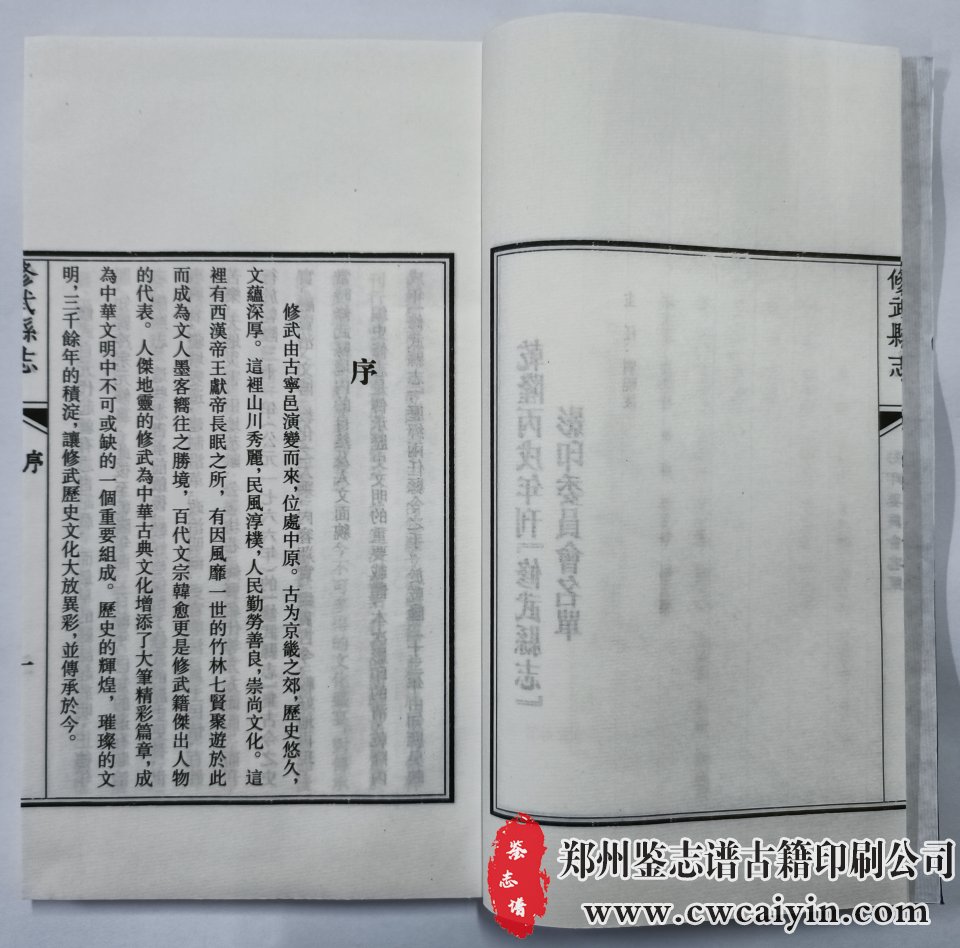 修武縣志
序
修武由古寧邑演變而來，位處中原。古为京畿之郊，歷史悠久，
文蘊深厚。這裡山川秀麗，民風淳樸，人民勤勞善良，崇尚文化。這
裡有西漢帝王獻帝長眠之所，有因風靡一世的竹林七賢聚遊於此
而成為文人墨客嚮往之勝境，百代文宗韓愈更是修武籍傑出人物
的代表。人傑地靈的修武為中華古典文化增添了大筆精彩篇章，成
為中華文明中不可或缺的一個重要組成。歷史的輝煌，璀璨的文
明，三千餘年的積淀，讓修武歷史文化大放異彩，並傳承於今。
修武縣志
序
一
乾隆丙戌年刊『修武縣志』
影印委員會名單
鉴志谱
郑州鉴志谱古籍印刷公司
www.cwcaiyin.com